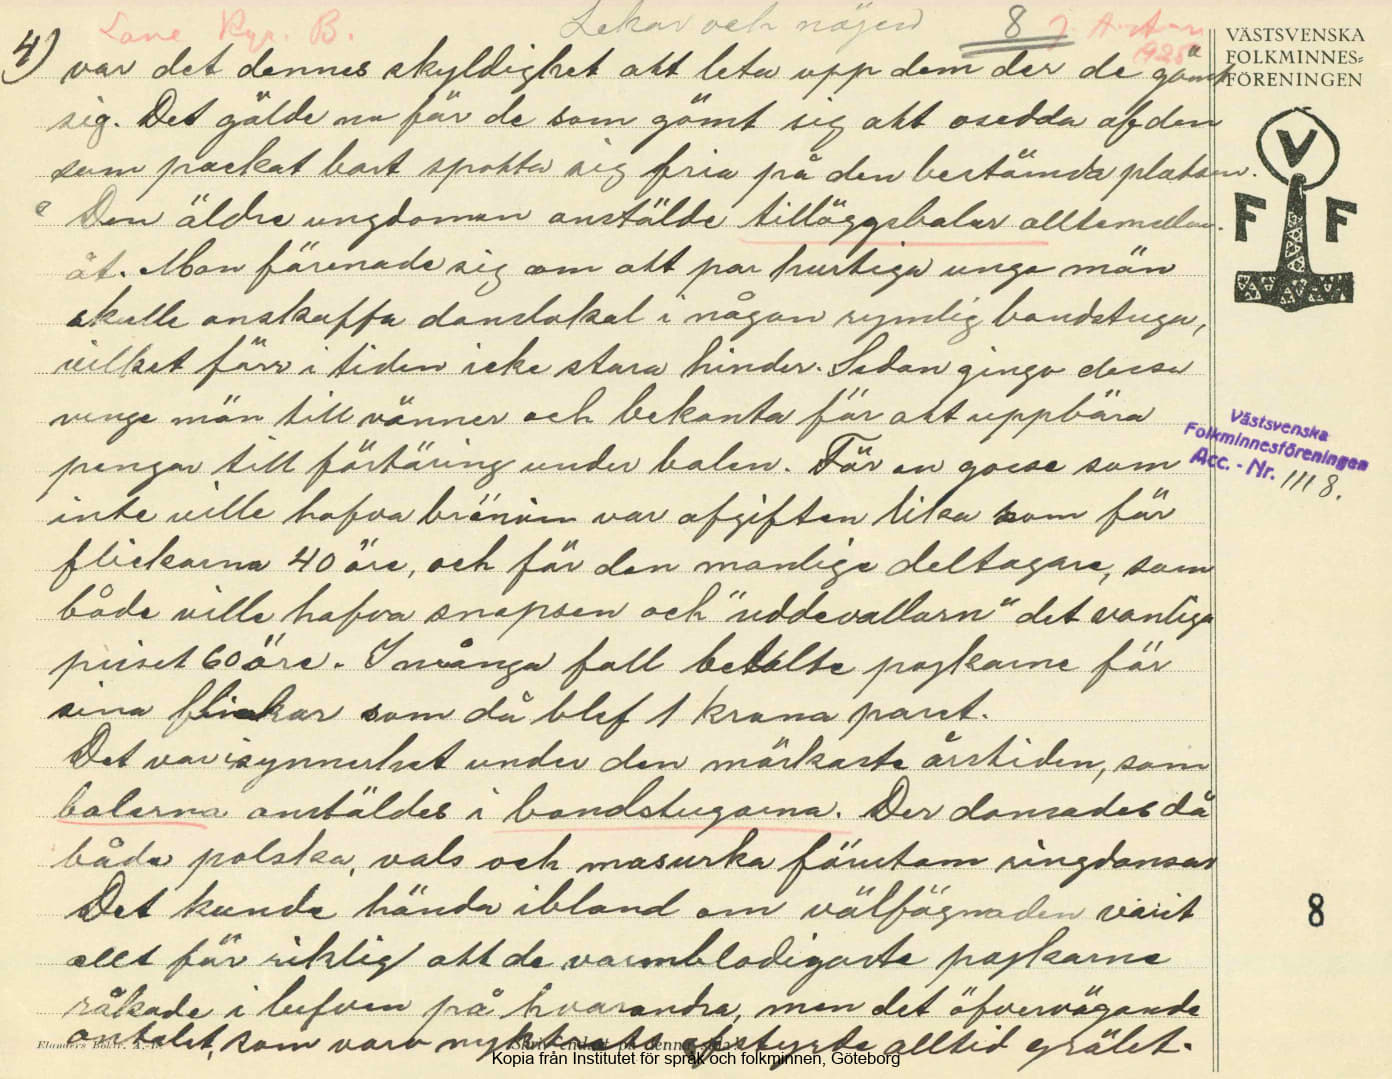 4)
Lane Ryr. B.
Lekar och nöjen
8
1928
VÄSTSVENSKA
FOLKMINNES=
FÖRENINGEN
V
F F
var det dennes skyldighet att leta upp dem der de gömt
sig. Det gälde nu för de som gömt sig att osedda af den
som packat bort spotta sig fria på den bestämda platsen.
Den äldre ungdomen anstälde tillöggsbalar alltemellan-
åt. Man förenade sig om att par hurtiga unga män
skulle anskaffa danslokal i någon rymlig bondstuga,
vilket förr i tiden icke stora hinder. Sedan gingo dessa
unga män till vänner och bekanta för att uppbära
pengar till förtäring under balen. För en gosse som
inte ville hafva bränvin var afgiften lika som för
flickorna 40 öre, och för den manlige deltagare, som
både ville hafva snapsen och "uddevallarn" det vanliga
priset 60 öre. I många fall betalte pojkarne för
sina flickor som då blef 1 krona paret.
Det var isynnerhet under den mörkaste årstiden, som
balerna anstäldes i bondstugorna. Der dansades då
både polska, vals och masurka förutom ringdansar
Det kunde hända ibland om välfägnaden varit
allt för riklig att de varmblodigaste pojkarne
råkade i lufven på hvarandra, men det öfvervägande
antalet, som voro nyktrast afstyrde alltid grälet.
Västsvenska
Folkminnesföreningen
Acc. - Nr. 1118.
8
Skriv endast på denna sida!
Kopia från Institutet för språk och folkminnen, Göteborg